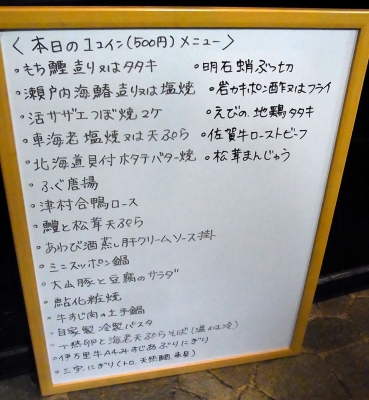 〈本日の1コイン(500円)メニュー〉
・もち鰹 造り又はタタキ
・瀬戸内海鰆造り又は塩焼
・活サザエつぼ焼 2ケ
・車海老 塩焼又は天ぷら
・北海道貝付ホタテバター焼
・ふぐ唐揚
・津村合鴨ロース
・鱧と松茸天ぷら
・あわび酒蒸し肝クリームソース掛
・ミニスッポン鍋
・大山豚と豆腐のサラダ
・鮎化粧焼
・牛すじ肉の土手鍋
・自家製 冷製パスタ
・卵と海老天ぷらそば(温又は冷)
・伊万里牛A4みすじあぶりにぎり
・にぎり(トロ、天然鯛、
・明石蛸ぶつ切
・岩カキポン酢又はフライ
・えびの、地鶏タタキ
・佐賀牛ローストビーフ
・松茸まんじゅう